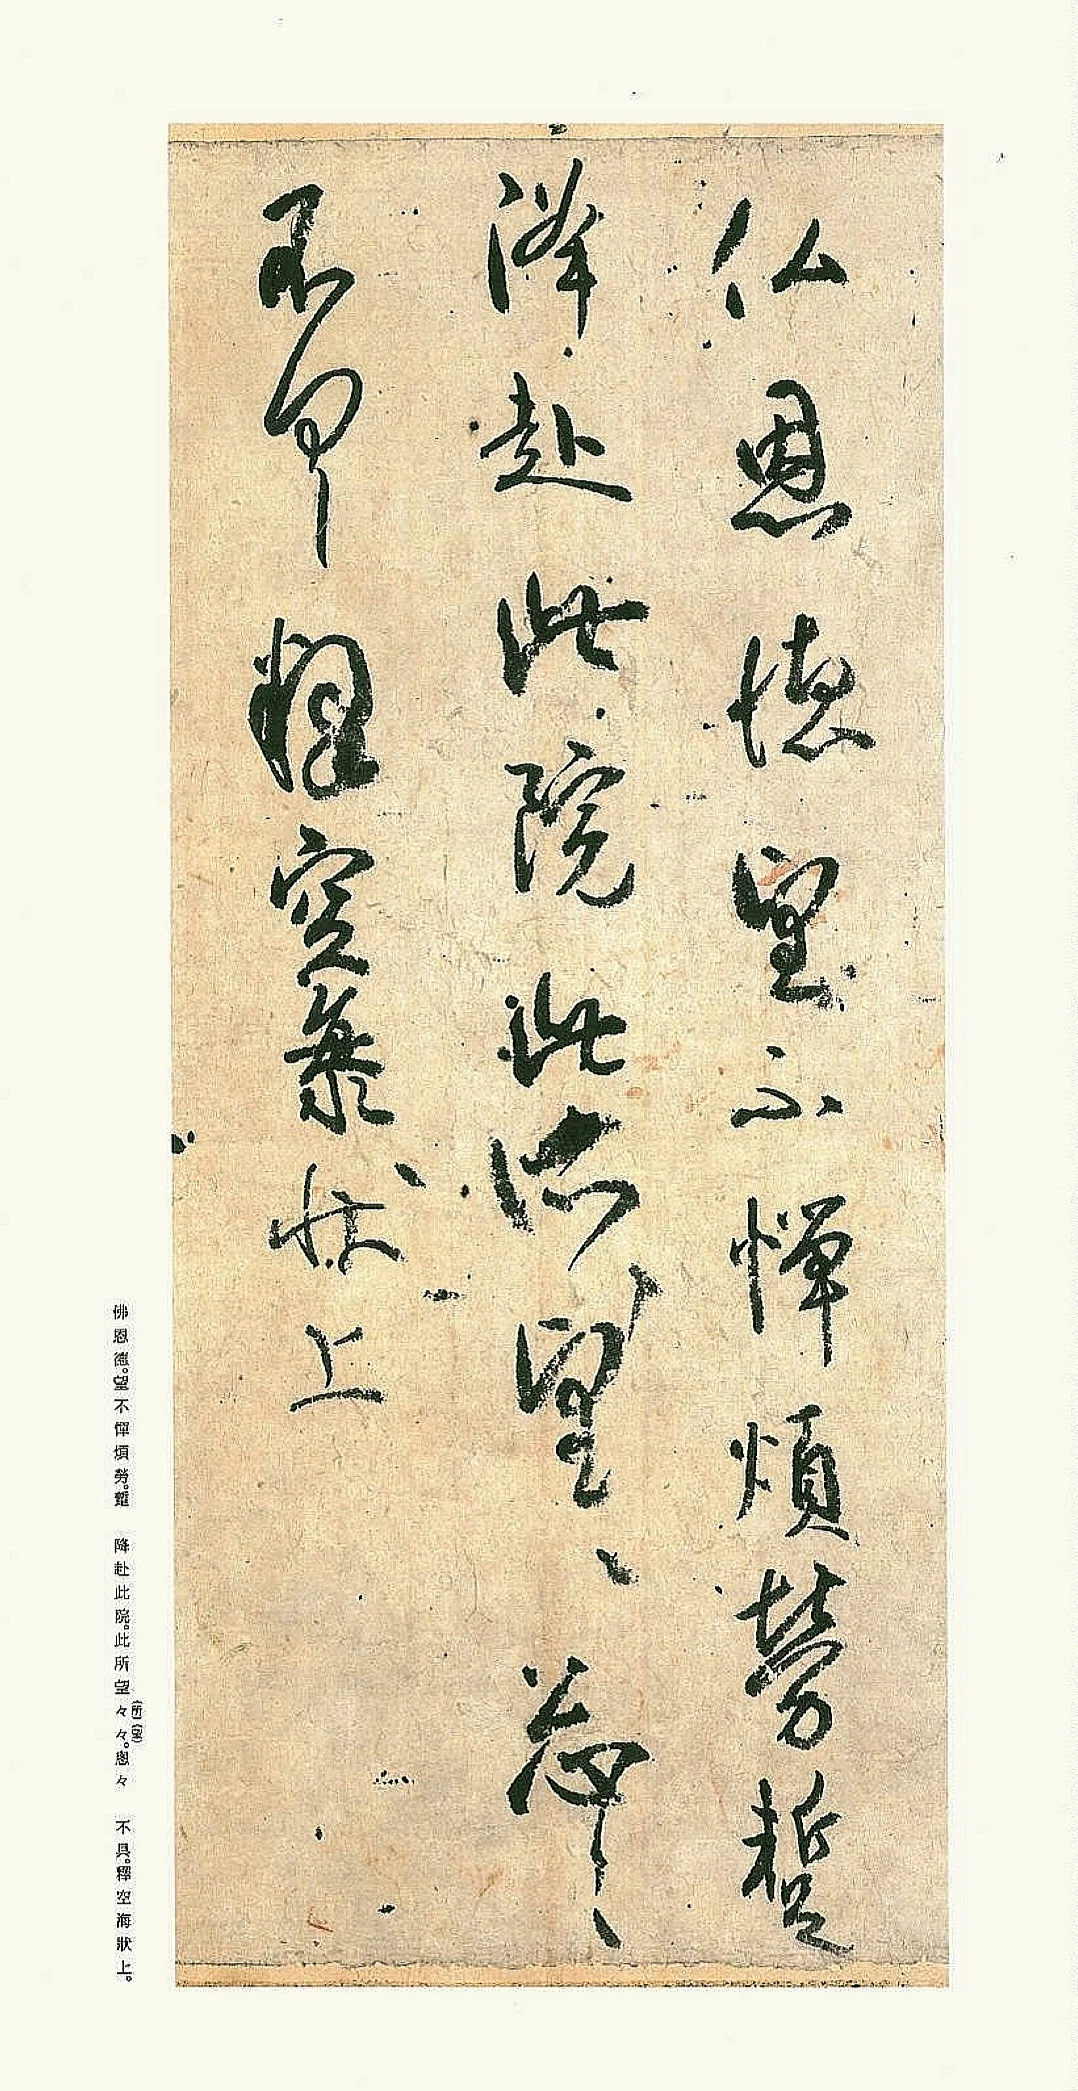 仏恩德望不憚煩勞蹔
降赴此院此所望〻忩々
不具釋空海狀上
佛恩德。望不憚煩勞。蹔　降赴此院。此所望々々。悤々　不具。釋空海狀上。
(所)(望)